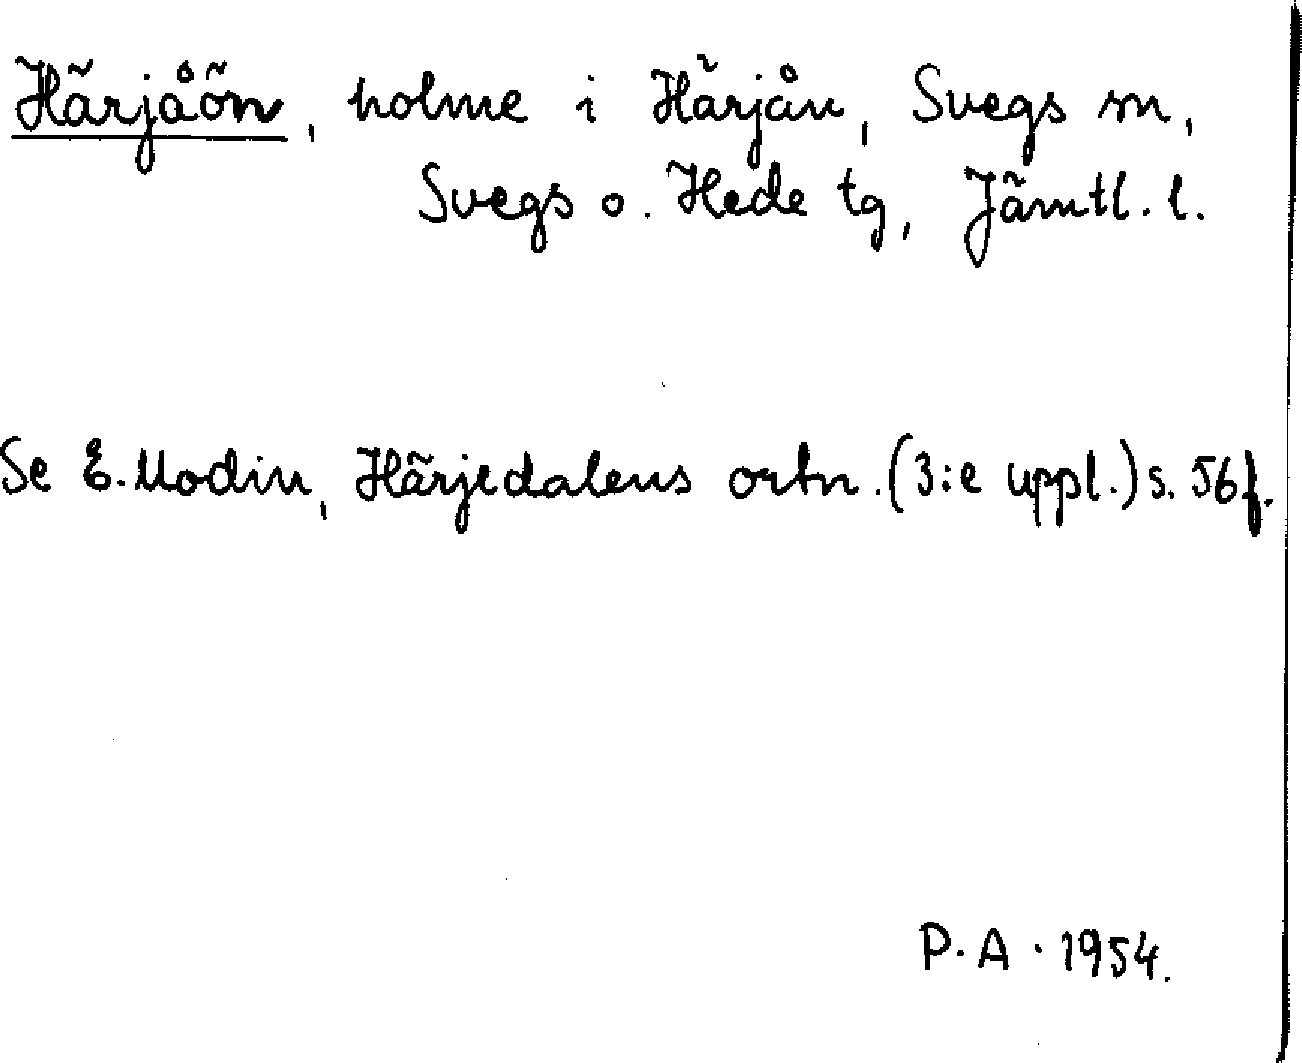 Härjåön, holme i Härjån, Svegs sn,
Svegs o. Hede tg, Jämtl. l.
Se E. Modin, Härjedalens ortn. (3:e uppl.) s. 56 f.
P. A. 1954.